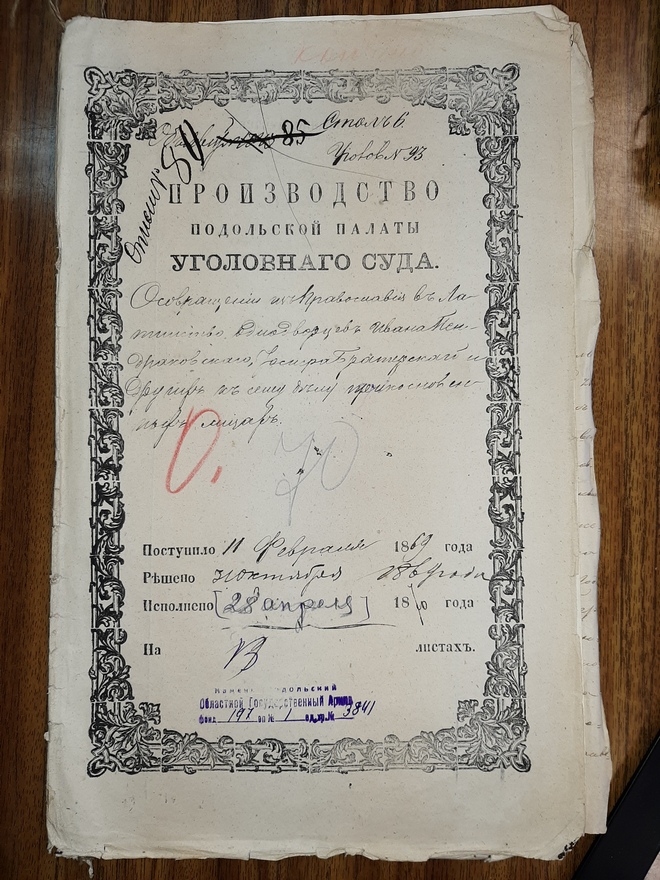 85 Столъ 6.
84 Уголов № 93
ПРОИЗВОДСТВО
ПОДОЛЬСКОЙ ПАЛАТЫ
УГОЛОВНАГО СУДА.
О совращении изъ Православія въ Ла-
тинство однодворцевъ Ивана
и
другихъ къ сему делу прикосновен-
ныхъ лицахъ.
О. 70
Поступило 11 Февраля 1869 года
Рѣшено 31 Октября 1869 года
Исполнено [28 апреля] 1870 года
На листахъ.
Каменец-Подольский
Областной Государственный Архив
фонд 197 оп № 1 ед.хр.№ 3841